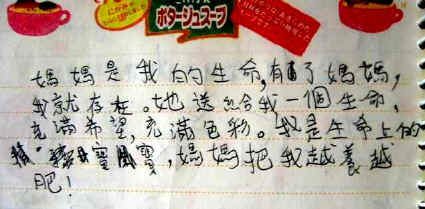 ポタージュスープ
媽媽是我的生命,有了媽媽,
我就存在。她送給我一個生命,
充滿希望,充滿色彩。我是生命上的
寶,媽媽把我越養越
肥!